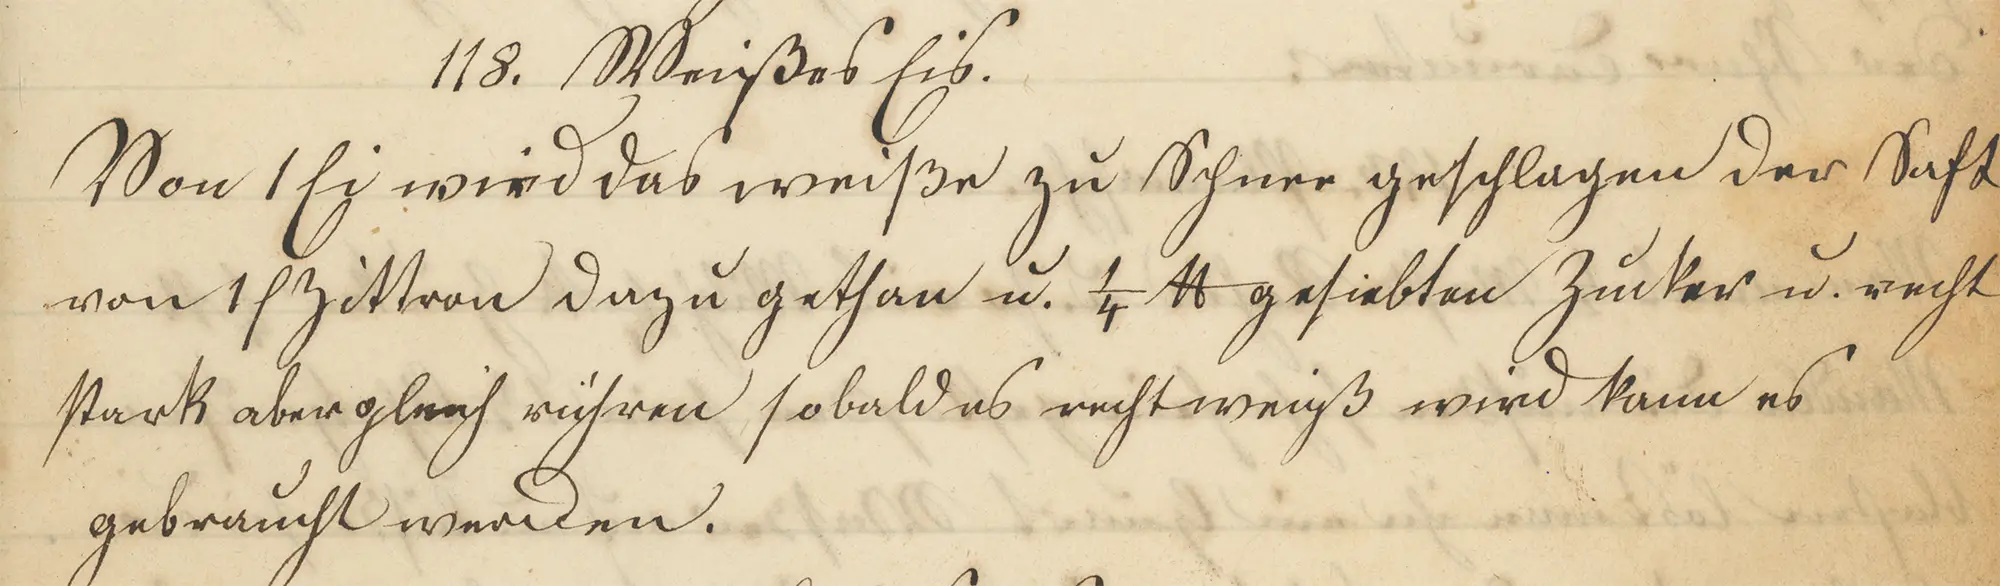 118. Weißes Eis.
Von 1 Ei wird das weiße zu Schnee geschlagen der Saft
von 1 Zittron dazu gethan u. 1/4 ℔ gesiebten Zucker u. recht
stark aber gleich rühren sobald es recht weiß wird kann es
gebraucht werden.